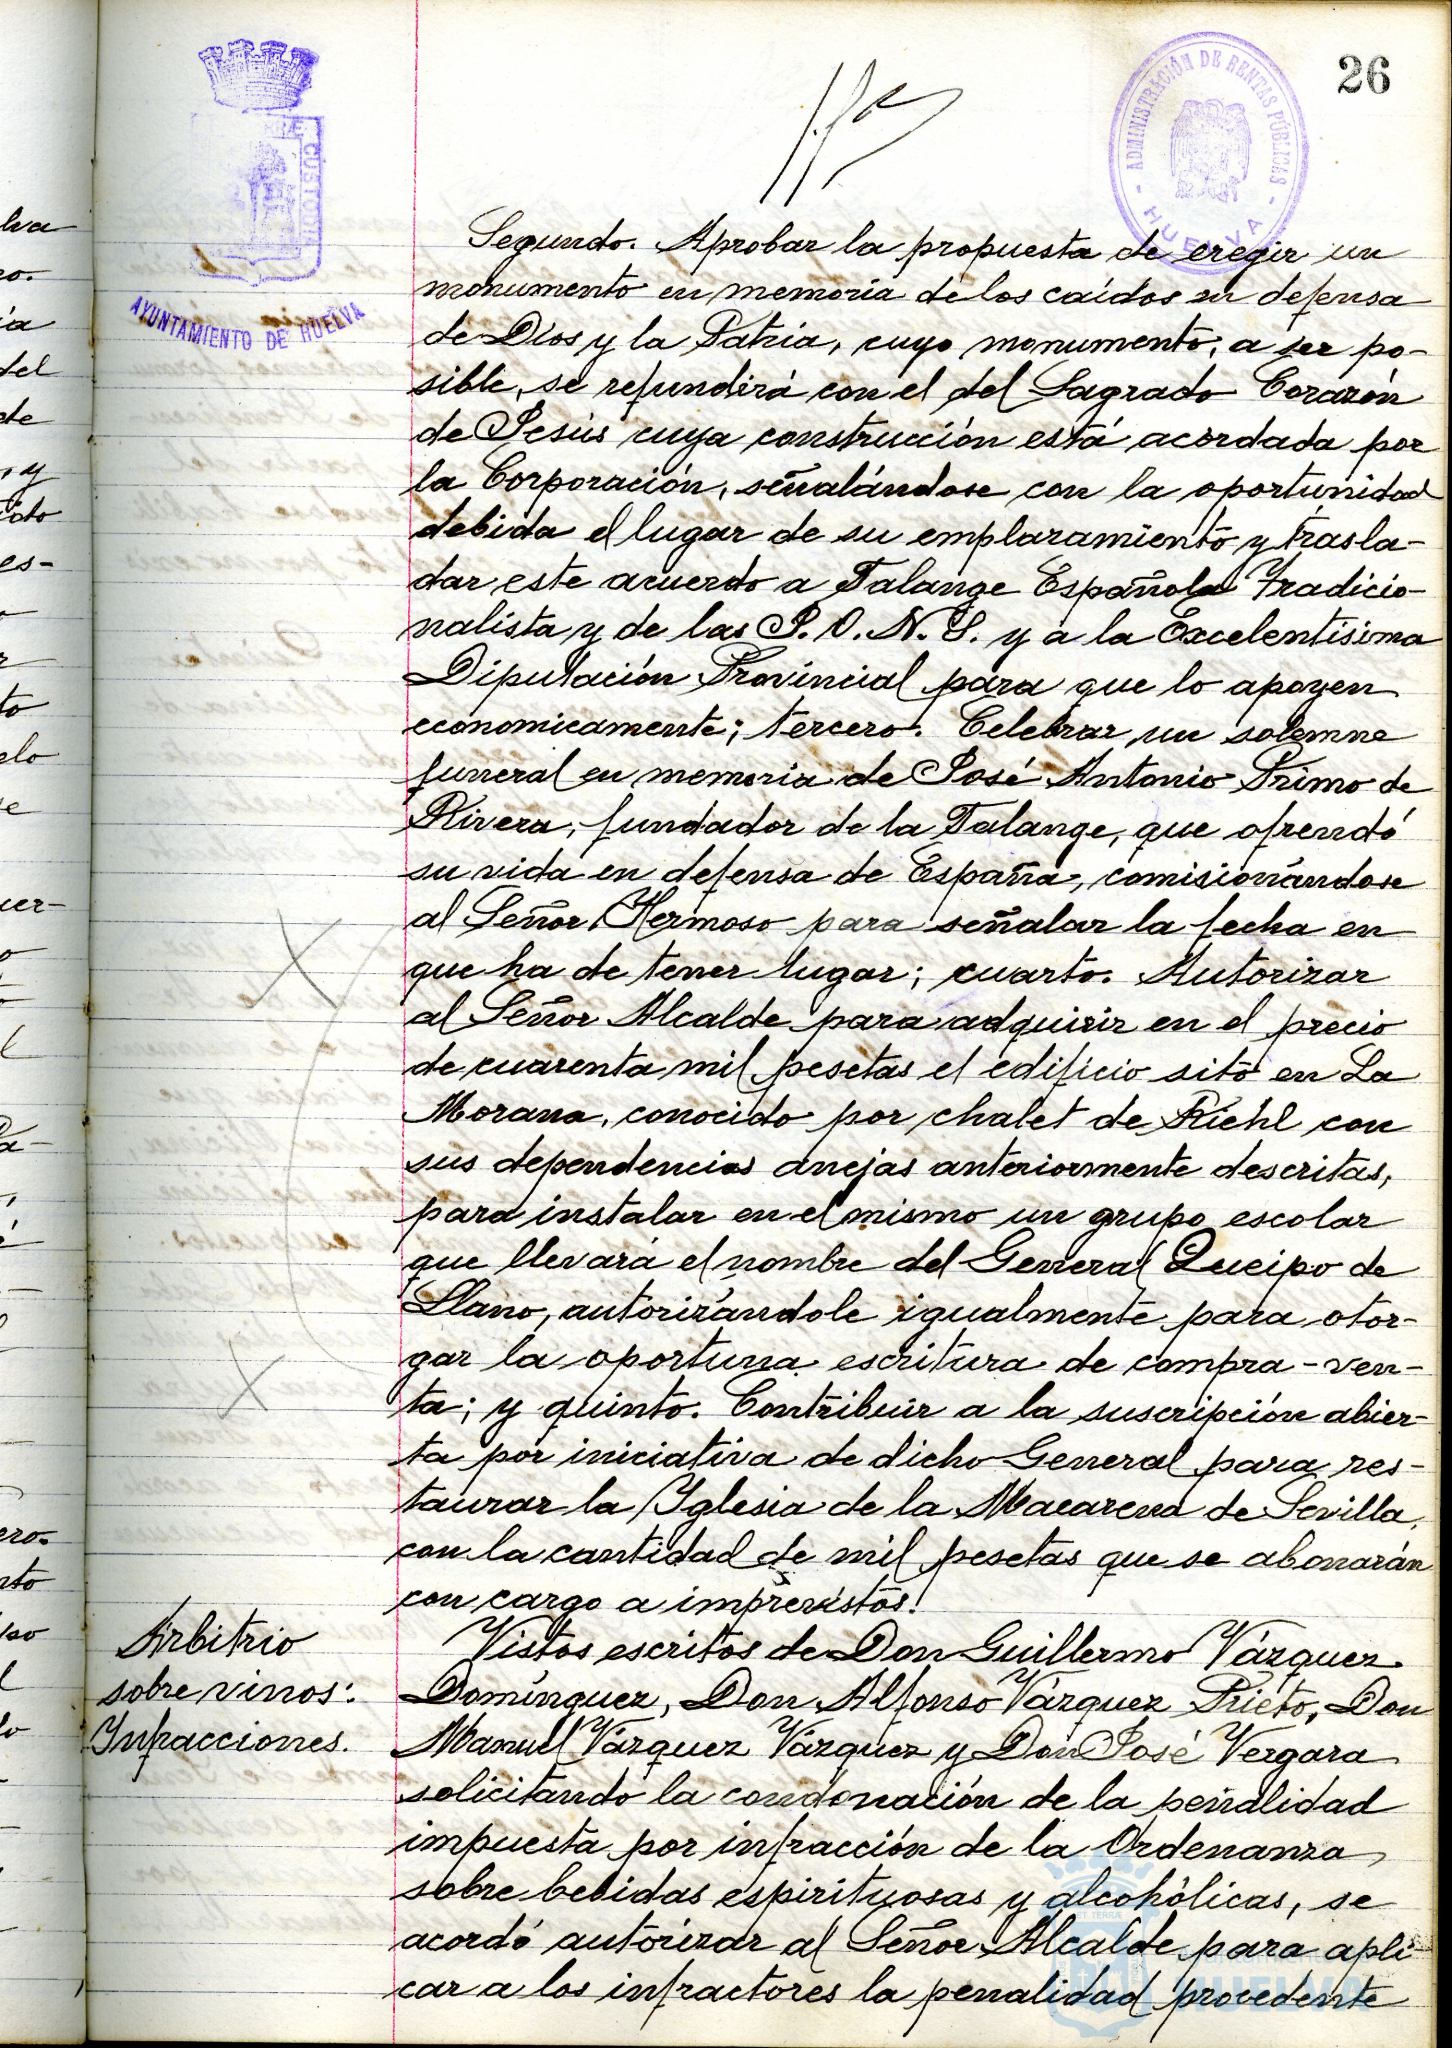 26
ADMINISTRACIÓN DE RENTAS PÚBLICAS
- HUELVA -
CUSTODIA
AYUNTAMIENTO DE HUELVA
Segundo. Aprobar la propuesta de eregir un
monumento en memoria de los caídos en defensa
de Dios y la Patria, cuyo monumento, a ser po-
sible, se refundirá con el del Sagrado Corazón
de Jesús cuya construcción está acordada por
la Corporación, señalándose con la oportunidad
debida el lugar de su emplazamiento y trasla-
dar este acuerdo a Falange Española Tradicio-
nalista y de las J.O.N.S. y a la Excelentisima
Diputación Provincial para que lo apoyen
economicamente; tercero. Celebrar un solemne
funeral en memoria de José Antonio Primo de
Rivera, fundador de la Falange, que ofrendó
su vida en defensa de España, comisionándose
al Señor Hermoso para señalar la fecha en
que ha de tener lugar; cuarto. Autorizar
al Señor Alcalde para adquirir en el precio
de cuarenta mil pesetas el edificio sito en La
Morana, conocido por chalet de Riehl con
sus dependencias anejas anteriormente descritas,
para instalar en el mismo un grupo escolar
que llevará el nombre del General Queipo de
Llano, autorizándole igualmente para otor-
gar la oportuna escritura de compra-ven-
ta; y quinto. Contribuir a la suscripción abier-
ta por iniciativa de dicho General para res-
taurar la Iglesia de la Macarena de Sevilla,
con la cantidad de mil pesetas que se abonarán
con cargo a imprevistos.
Arbitrio
sobre vinos:
Infracciones.
Vistos escritos de Don Guillermo Vázquez
Domínguez, Don Alfonso Vázquez Prieto, Don
Manuel Vázquez Vázquez y Don José Vergara
solicitando la condonación de la penalidad
impuesta por infracción de la Ordenanza
sobre bebidas espirituosas y alcohólicas, se
acordó autorizar al Señor Alcalde para apli-
car a los infractores la penalidad procedente
HUELVA